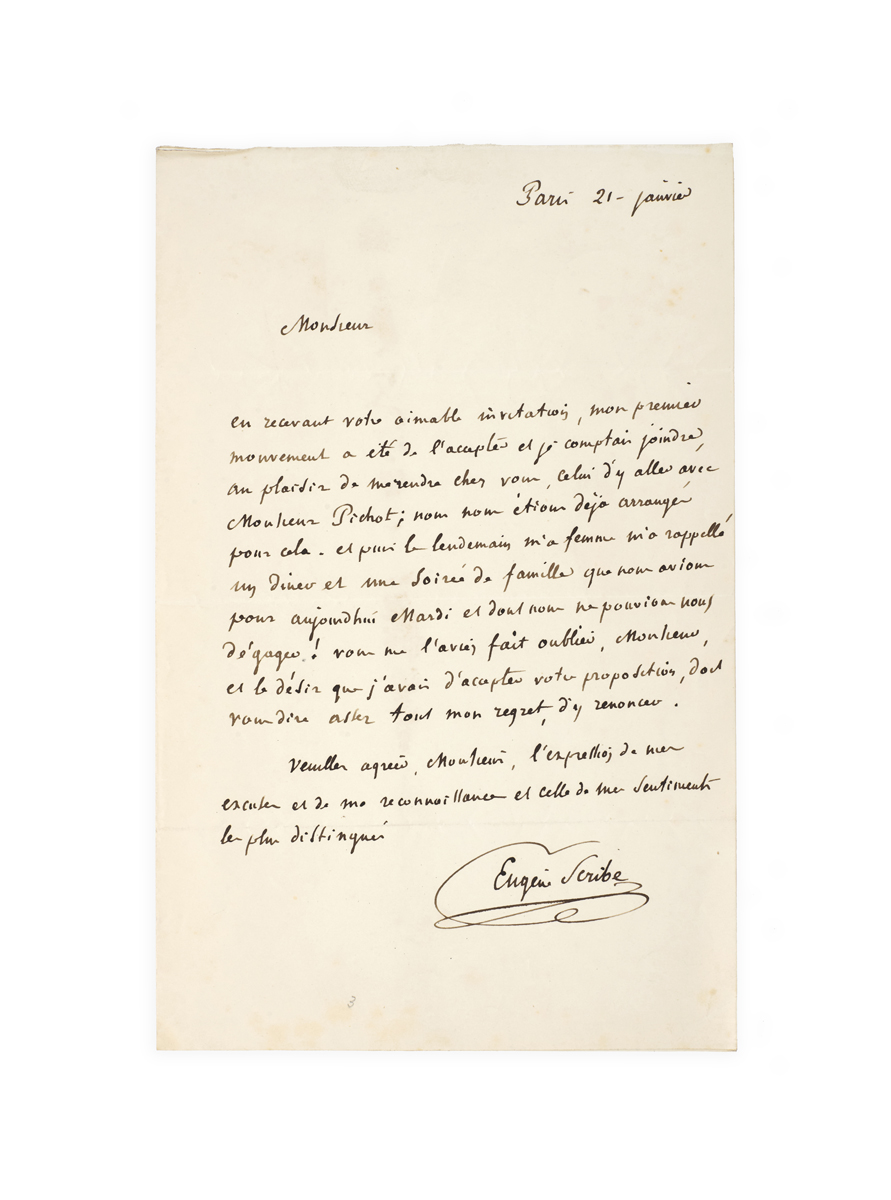 Paris 21 - janvier
Monsieur
en recevant votre aimable invitation, mon premier
mouvement a été de l'accepter et je comptais joindre,
au plaisir de me rendre chez vous, celui d'y aller avec
Monsieur Pichot; nous nous étions déjà arrangés
pour cela. et puis le lendemain m'a femme m'a rappellé
un diner et une soireé de famille que nous avions
pour aujourdhui Mardi et dont nous ne pouvions nous
dégager! vous me l'aviez fait oublier, Monsieur,
et le désir que j'avais d'accepter votre proposition, doit
vous dire assez tout mon regret, d'y renoncer.
Veuillez agréer, Monsieur, l'expression de mes
excuses et de ma reconnaissance et celle de mes sentiments
les plus distingués
Eugène Scribe
3